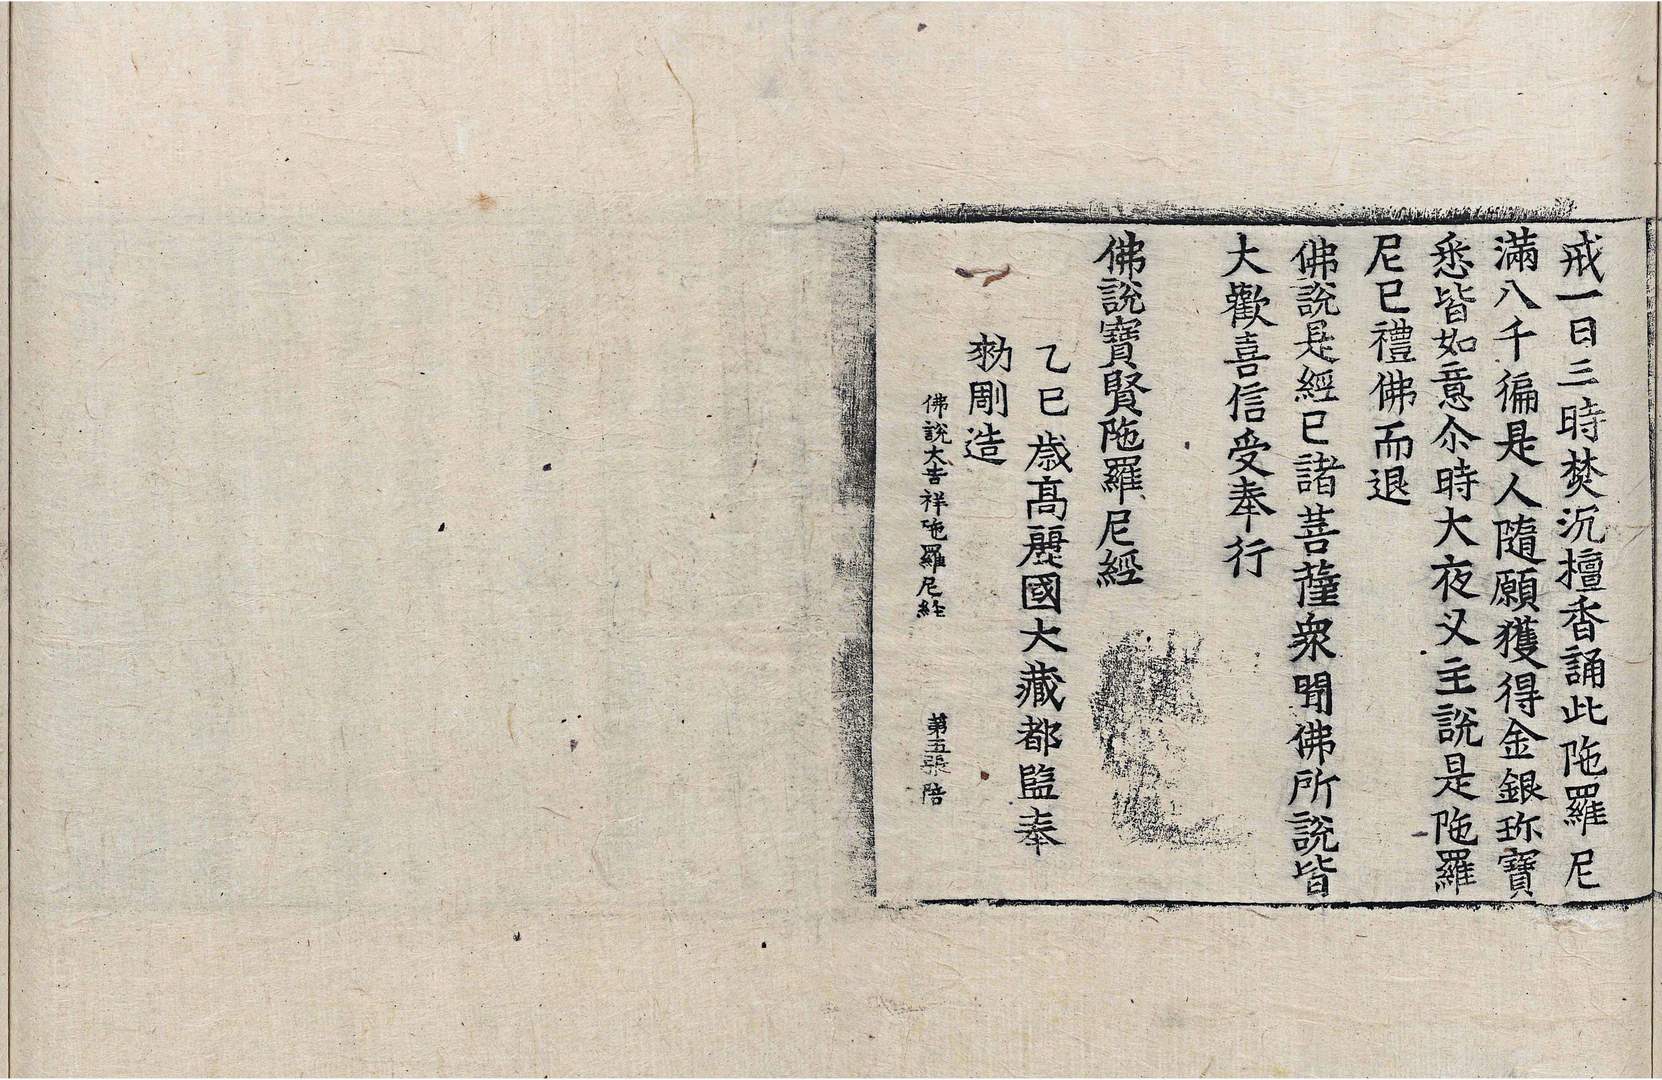 戒一日三時焚沉檀香誦此陁羅尼
滿八千徧是人隨願獲得金銀珎寶
悉皆如意尒時大夜叉主說是陁羅
尼已禮佛而退
佛說是經已諸菩薩衆聞佛所說皆
大歡喜信受奉行
佛說寶賢陁羅尼經
乙巳歲高麗國大藏都監奉
勑彫造
佛說大吉祥陁羅尼経 第五張 陪